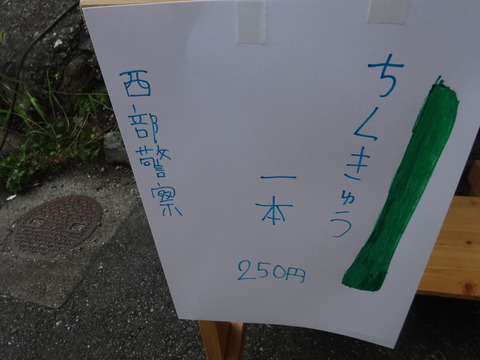 ちくきゅう
一本
250円
西部警察